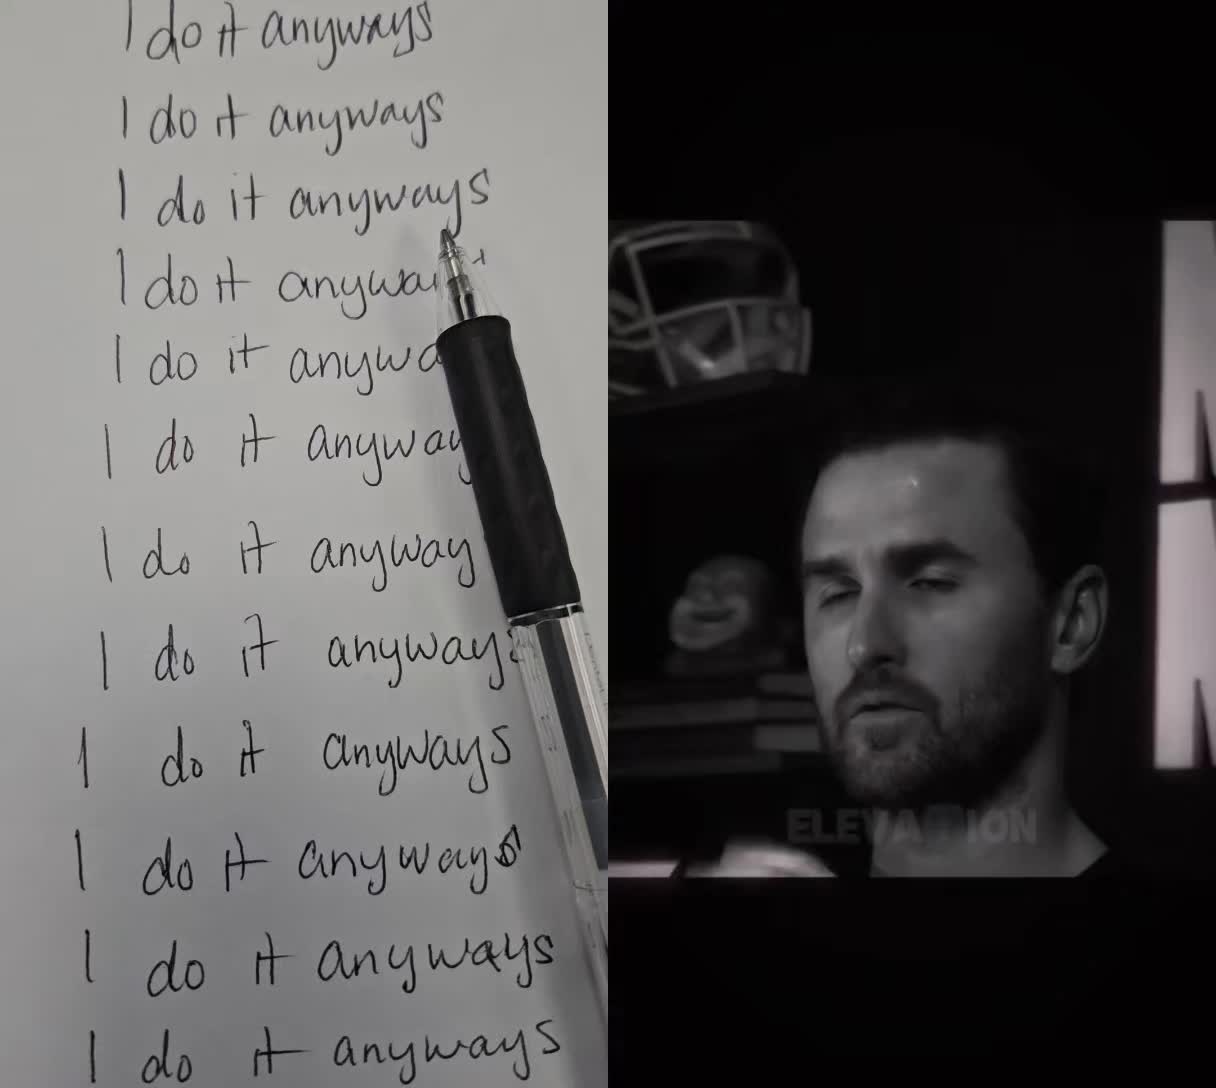 I do it anyways
I do it anyways
I do it anyways
I do it anyways
I do it anywa
I do it anyway
I do it anyway
I do it anyways
I do it anyways
I do it anyways
I do it anyways
I do it anyways
ELEVATION